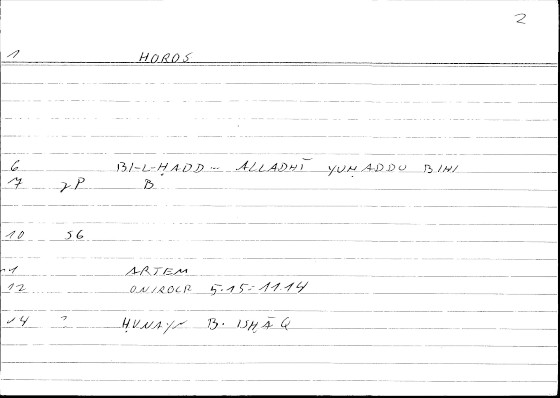 2
1 HOROS
6 BI-L-ḤADD - ALLADHĪ YUḤADDU BIHI
7 2P B
10 56
11 ARTEM
12 ONIROCR 5.15-11.14
14 ? ḤUNAYN B. ISḤĀQ